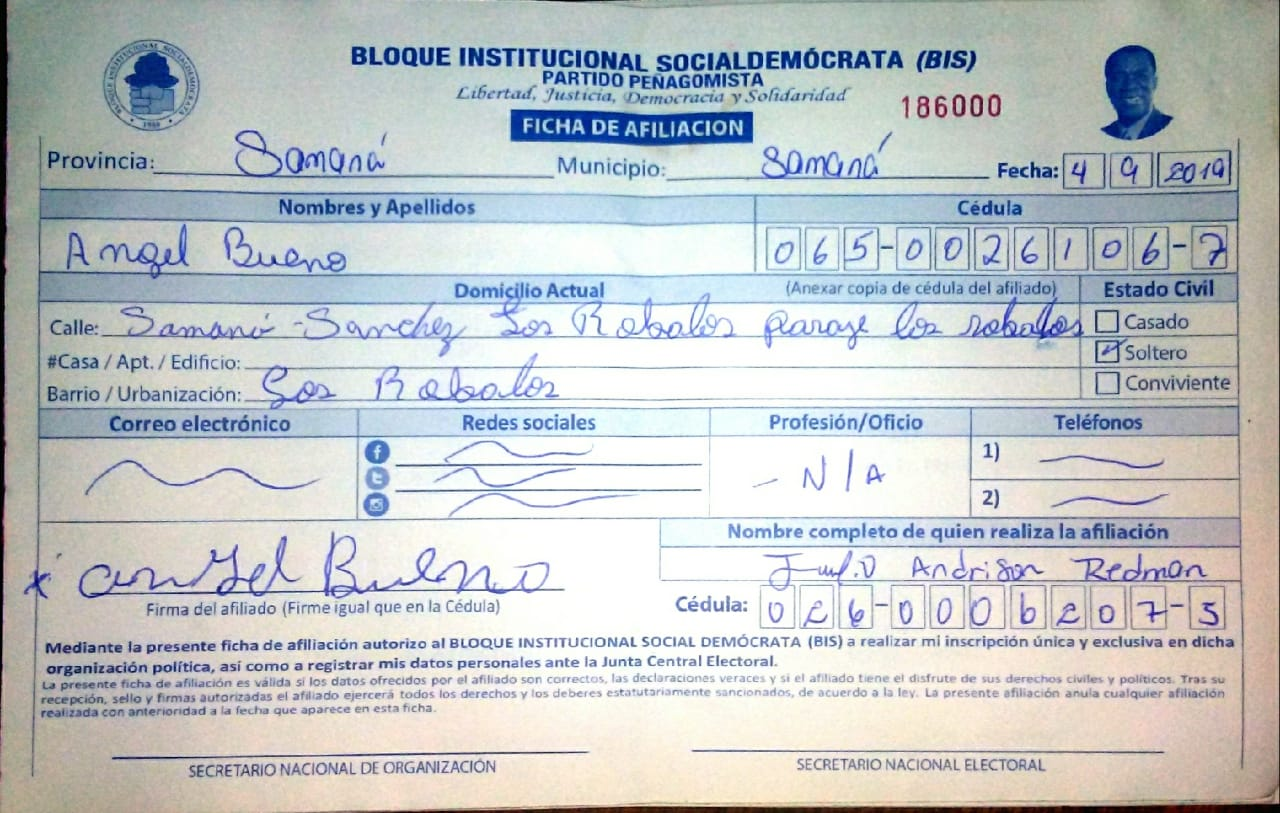 BLOQUE INSTITUCIONAL SOCIALDEMÓCRATA (BIS)
PARTIDO PEÑAGOMISTA
Libertad, Justicia, Democracia y Solidaridad
186000
FICHA DE AFILIACION
Provincia: Samaná Municipio: Samaná Fecha: 4 9 2019
Nombres y Apellidos Cédula
Angel Bueno 065-0026106-7
Domicilio Actual (Anexar copia de cédula del afiliado) Estado Civil
Calle: Samaná-Sanchez Los Robalos paraje los robalos Casado
#Casa / Apt. / Edificio: Soltero
Barrio / Urbanización: Los Robalos Conviviente
Correo electrónico Redes sociales Profesión/Oficio Teléfonos
1)
- N/A
2)
Nombre completo de quien realiza la afiliación
x angel Bueno Andrison Redman
Firma del afiliado (Firme igual que en la Cédula) Cédula: 026-0006207-5
Mediante la presente ficha de afiliación autorizo al BLOQUE INSTITUCIONAL SOCIAL DEMÓCRATA (BIS) a realizar mi inscripción única y exclusiva en dicha
organización política, así como a registrar mis datos personales ante la Junta Central Electoral.
La presente ficha de afiliación es válida si los datos ofrecidos por el afiliado son correctos, las declaraciones veraces y si el afiliado tiene el disfrute de sus derechos civiles y políticos. Tras su
recepción, sello y firmas autorizadas el afiliado ejercerá todos los derechos y los deberes estatutariamente sancionados, de acuerdo a la ley. La presente afiliación anula cualquier afiliación
realizada con anterioridad a la fecha que aparece en esta ficha.
SECRETARIO NACIONAL DE ORGANIZACIÓN SECRETARIO NACIONAL ELECTORAL